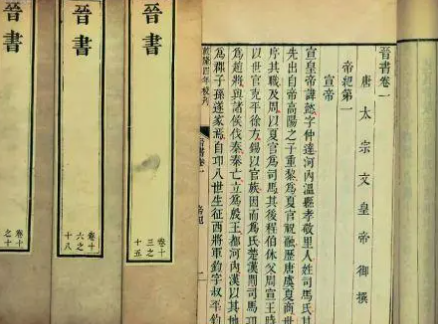 晉書卷一
唐太宗文皇帝御撰
帝紀第一
宣帝
宣皇帝諱懿字仲達河內溫縣孝敬里人姓司馬氏其
先出自帝高陽之子重黎為夏官祝融歷唐虞夏商世
序其職及周以夏官為司馬其後程伯休父周宣王時
以世官克平徐方錫以官族因而為氏楚漢間司馬卬
為趙將與諸侯伐秦秦亡立為殷王都河內漢以其地
為郡子孫遂家焉自卬八世生征西將軍鈞字叔平鈞
乾隆四年校刊
晉書卷一
帝紀
一
晉書
卷十
三之
十五
晉書
卷十
六之
十八
晉書
卷十
之十